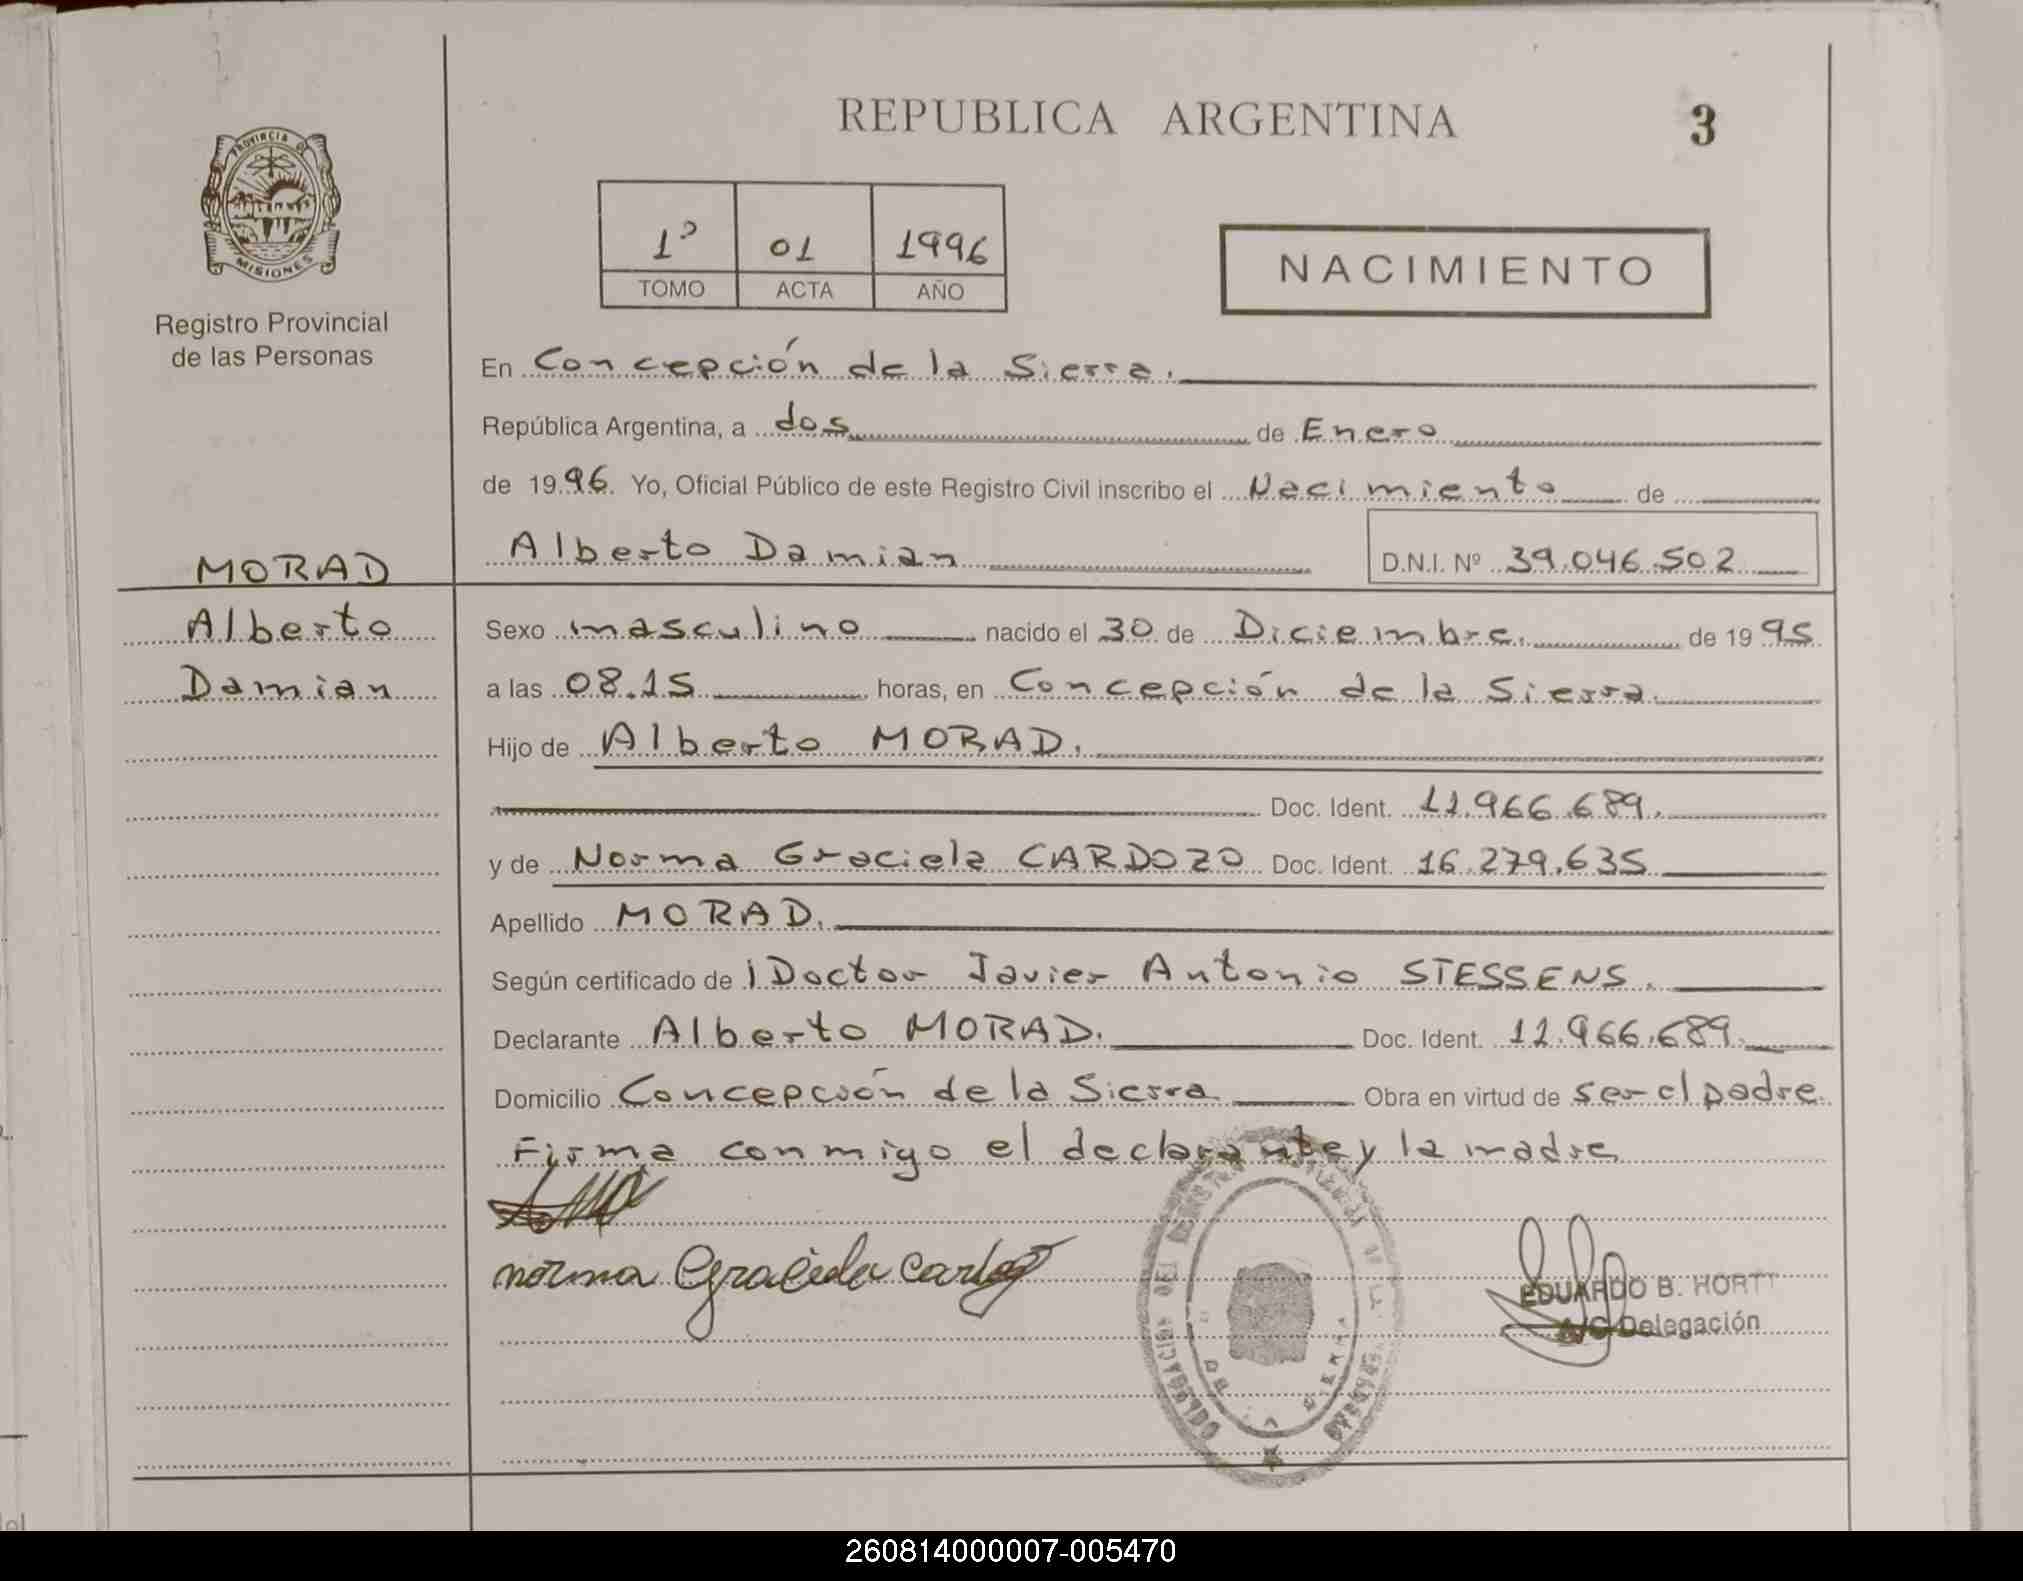 REPUBLICA ARGENTINA
3
PROVINCIA DE
MISIONES
Registro Provincial
de las Personas
1º 01 1996
TOMO ACTA AÑO
NACIMIENTO
En Concepción de la Sierra.
República Argentina, a dos de Enero
de 1996. Yo, Oficial Público de este Registro Civil inscribo el Nacimiento de
Alberto Damian D.N.I. Nº 39.046.502
MORAD
Alberto
Damian
Sexo masculino nacido el 30 de Diciembre. de 1995
a las 08.15 horas, en Concepción de la Sierra.
Hijo de Alberto MORAD.
Doc. Ident. 11.966.689.
y de Norma Graciela CARDOZO Doc. Ident. 16.279.635
Apellido MORAD.
Según certificado de l Doctor Javier Antonio STESSENS.
Declarante Alberto MORAD. Doc. Ident. 11.966.689.
Domicilio Concepción de la Sierra Obra en virtud de ser el padre.
Firma conmigo el declarante y la madre
norma Graciela Cardozo
EDUARDO B. HORTT
A/C Delegación
260814000007-005470